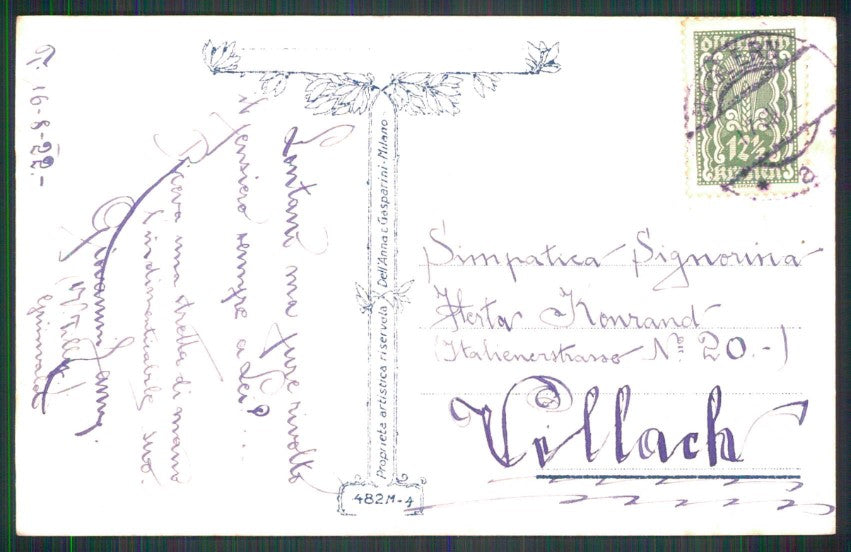 T. 16-8-22.-
Lontani ma pure rivolto
il pensiero sempre a Lei!...
Riceva una stretta di mano
indimenticabile suo.
Giovanni
Proprietà artistica riservata Dell'Anna & Gasparini - Milano
482M-4
ÖSTERREICH
12½
KRONEN
Simpatica Signorina
Herta Konrand
(Italienerstrasse No 20.-)
Villach